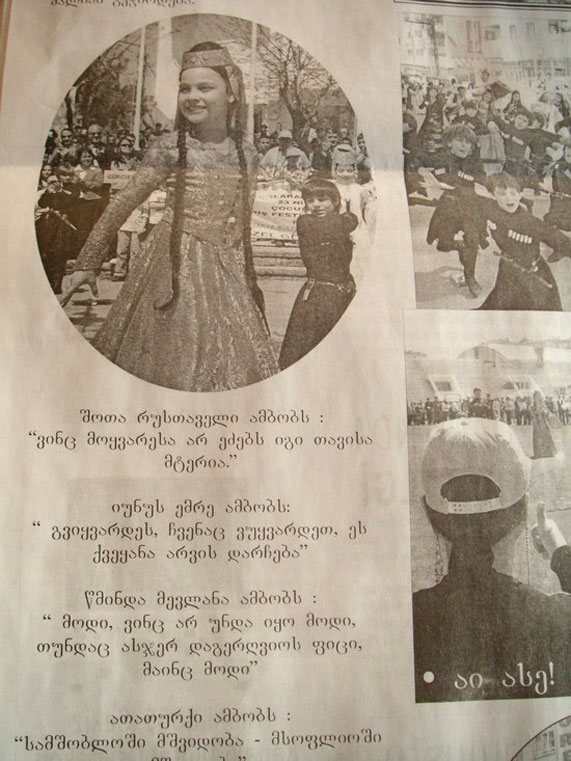 შოთა რუსთაველი ამბობს :
“ვინც მოყვარესა არ ეძებს იგი თავისა
მტერია.”
იუნუს ემრე ამბობს:
“ გვიყვარდეს, ჩვენაც ვუყვარდეთ, ეს
ქვეყანა არვის დარჩება”
წმინდა მევლანა ამბობს :
“ მოდი, ვინც არ უნდა იყო მოდი,
თუნდაც ასჯერ დაგერღვიოს ფიცი,
მაინც მოდი”
ათათურქი ამბობს :
“სამშობლოში მშვიდობა - მსოფლიოში
• აი ასე!
23 Nİ
ÇOCU